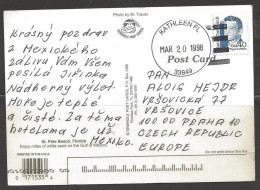 Photo by M. Travel
Krásný pozdrav
z Mexického
zálivu Vám všem
posílá Jiřinka
Nádherný výlet
Moře je teplé
a čisté. Za těma
hotelama je už
Mexiko.
KATHLEEN FL
MAR 20 1998
33849
Post Card
USA 40
PAN
ALOIS HEJDR
VRŠOVICKÁ 77
VRŠOVICE
100 00 PRAHA 10
CZECH REPUBLIC
EUROPE
PRINTED IN THE U.S.A.
St. Pete Beach, Florida
Enjoy miles of white sand on the Gulf of Mexico.